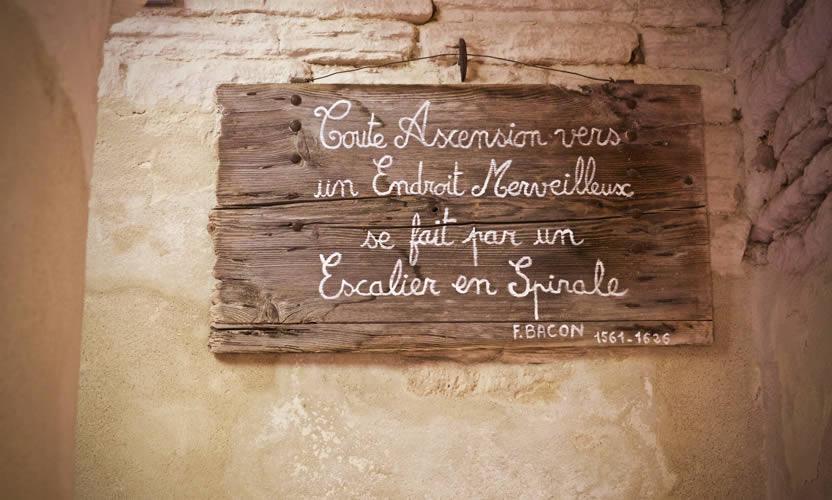 Toute Ascension vers
un Endroit Merveilleux
se fait par un
Escalier en Spirale
F. BACON 1561-1626